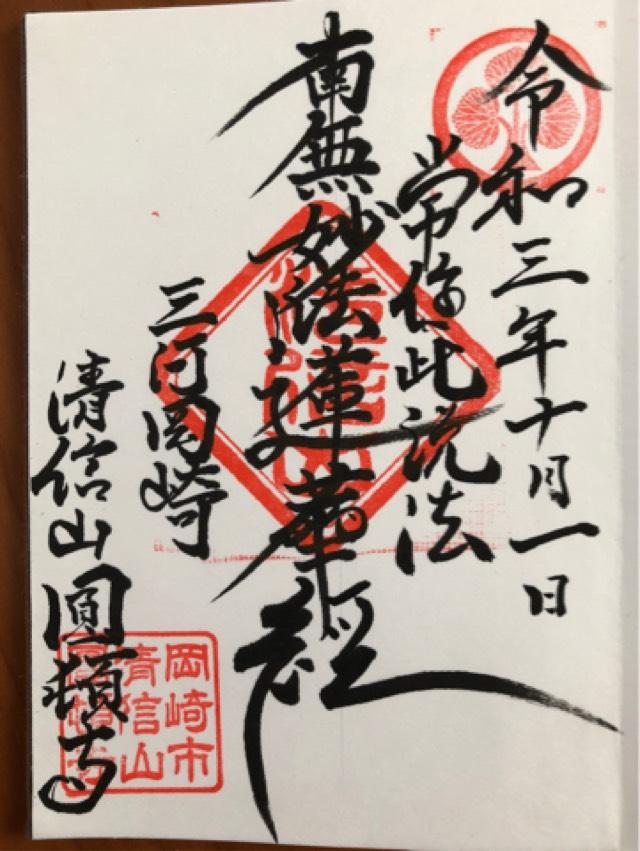 令和三年十月一日
常住此説法
南無妙法蓮華経
三河岡崎
清信山圓頓寺
岡崎市
清信山
圓頓寺